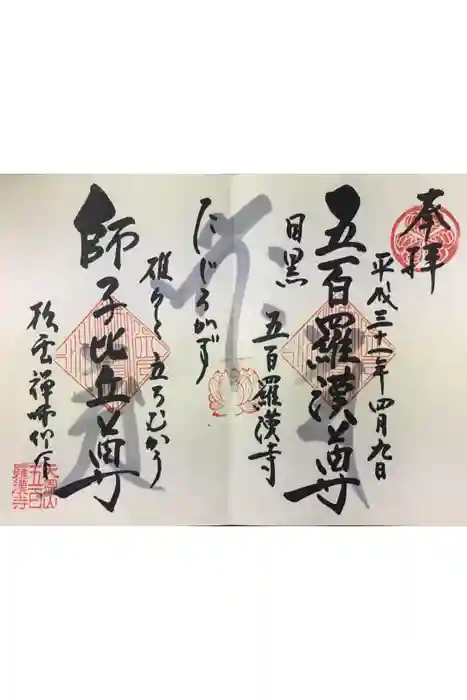 奉拝
平成三十一年四月九日
五百羅漢尊
目黒
五百羅漢寺
にじろがず
確と立ちむかう
師子比丘尊
松雲禅師作
天恩山
五百
羅漢寺